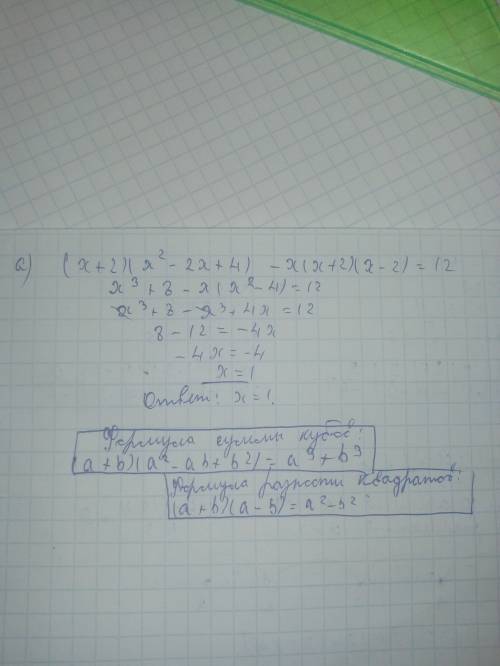 а) (x+2)(x²-2x+4) -x(x+2)(x-2)=12
x³+8-x(x²-4)=12
x³+8-x³+4x=12
8-12=-4x
-4x=-4
x=1
Ответ: x=1.
Формула суммы кубов:
(a+b)(a²-ab+b²)=a³+b³
Формула разности квадратов:
(a+b)(a-b)=a²-b²